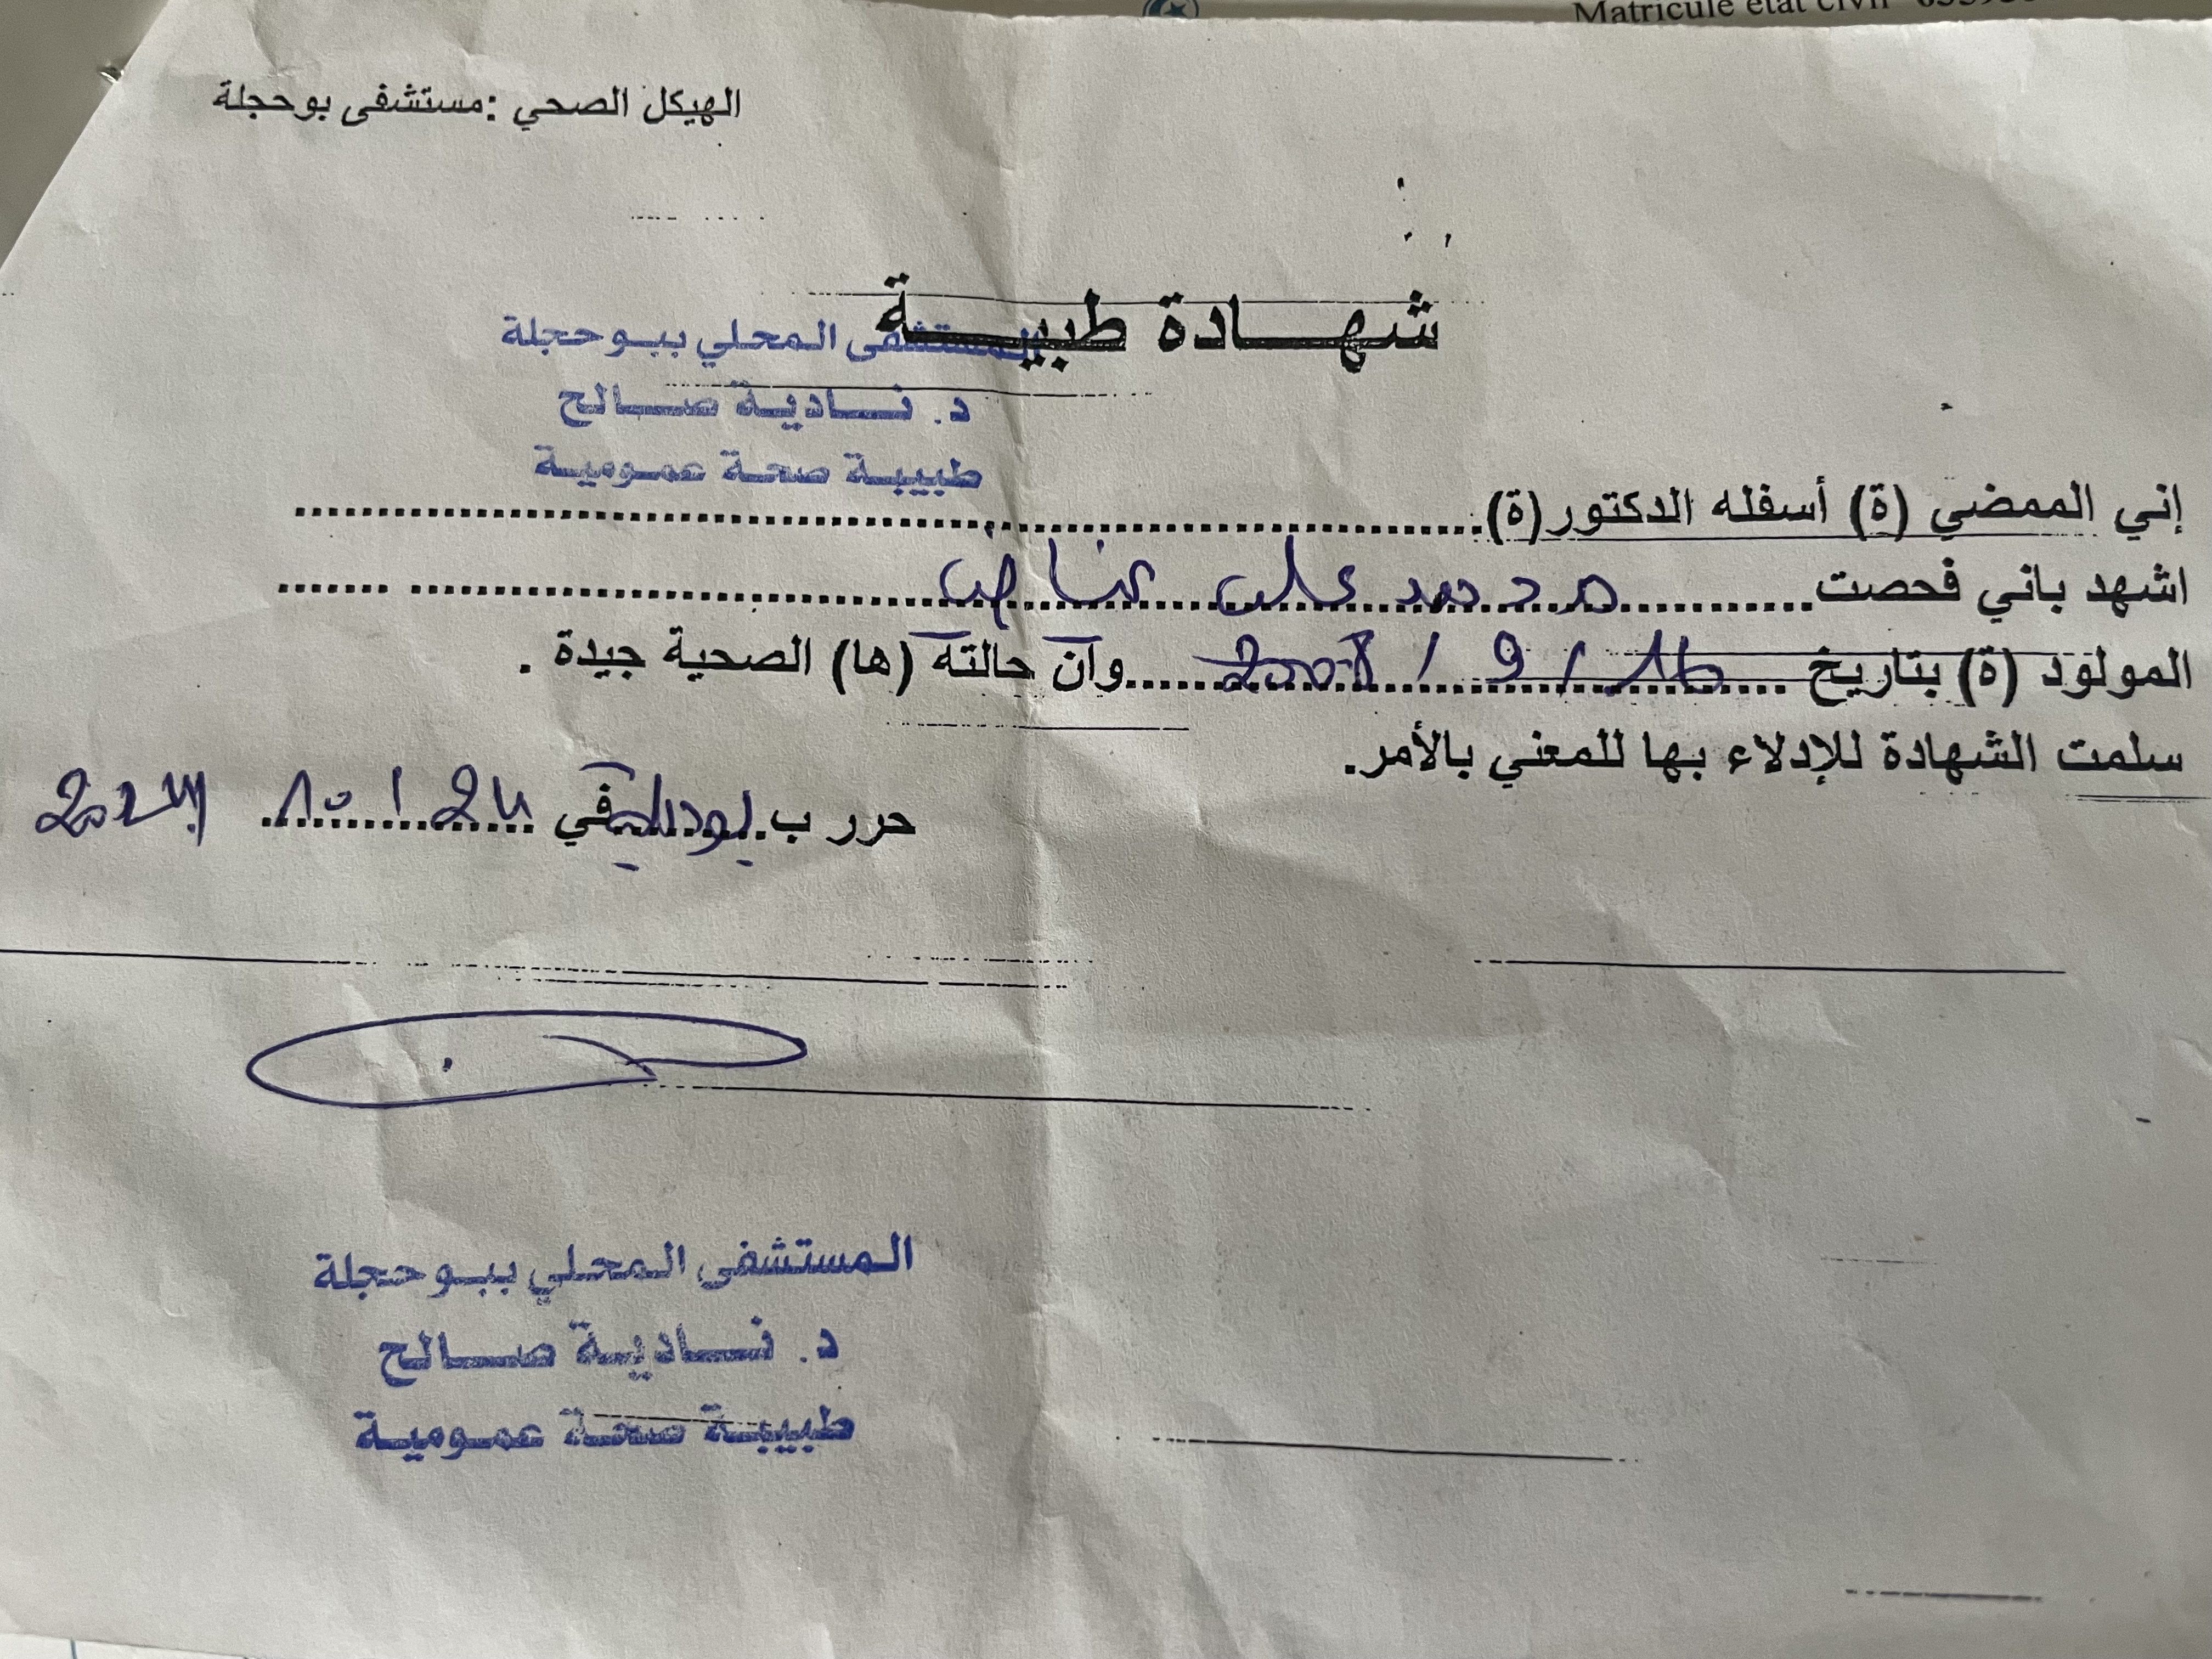 Matricule état civil
الهيكل الصحي :مستشفى بوحجلة
شهادة طبية
المستشفى المحلي ببوحجلة
د. نادية صالح
طبيبة صحة عمومية
إني الممضي (ة) أسفله الدكتور(ة)
اشهد باني فحصت محمد علي
المولود (ة) بتاريخ 16 / 9 / 2008 وأن حالته (ها) الصحية جيدة .
سلمت الشهادة للإدلاء بها للمعني بالأمر.
حرر ب بوحجلة في
المستشفى المحلي ببوحجلة
د. نادية صالح
طبيبة صحة عمومية